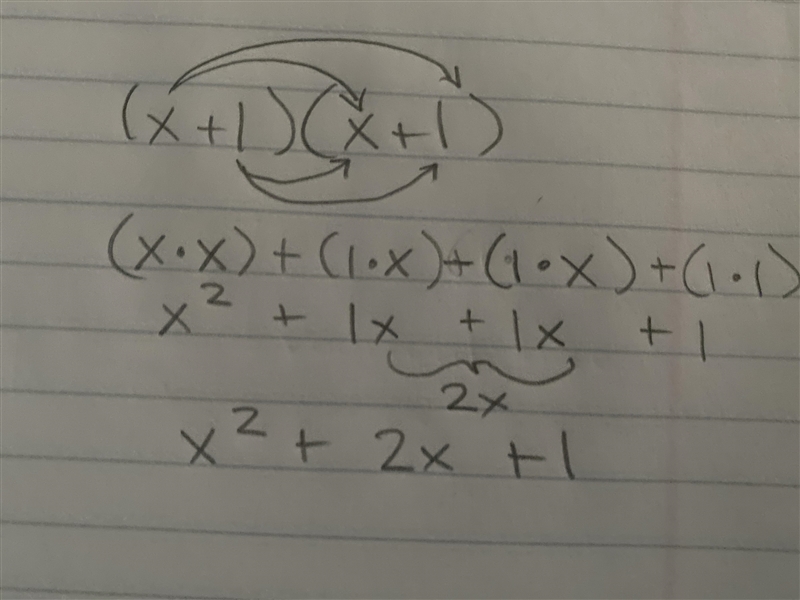 (x+1)(x+1)
(x·x)+(1·x)+(1·x)+(1·1)
x² + 1x + 1x + 1
2x
x² + 2x + 1